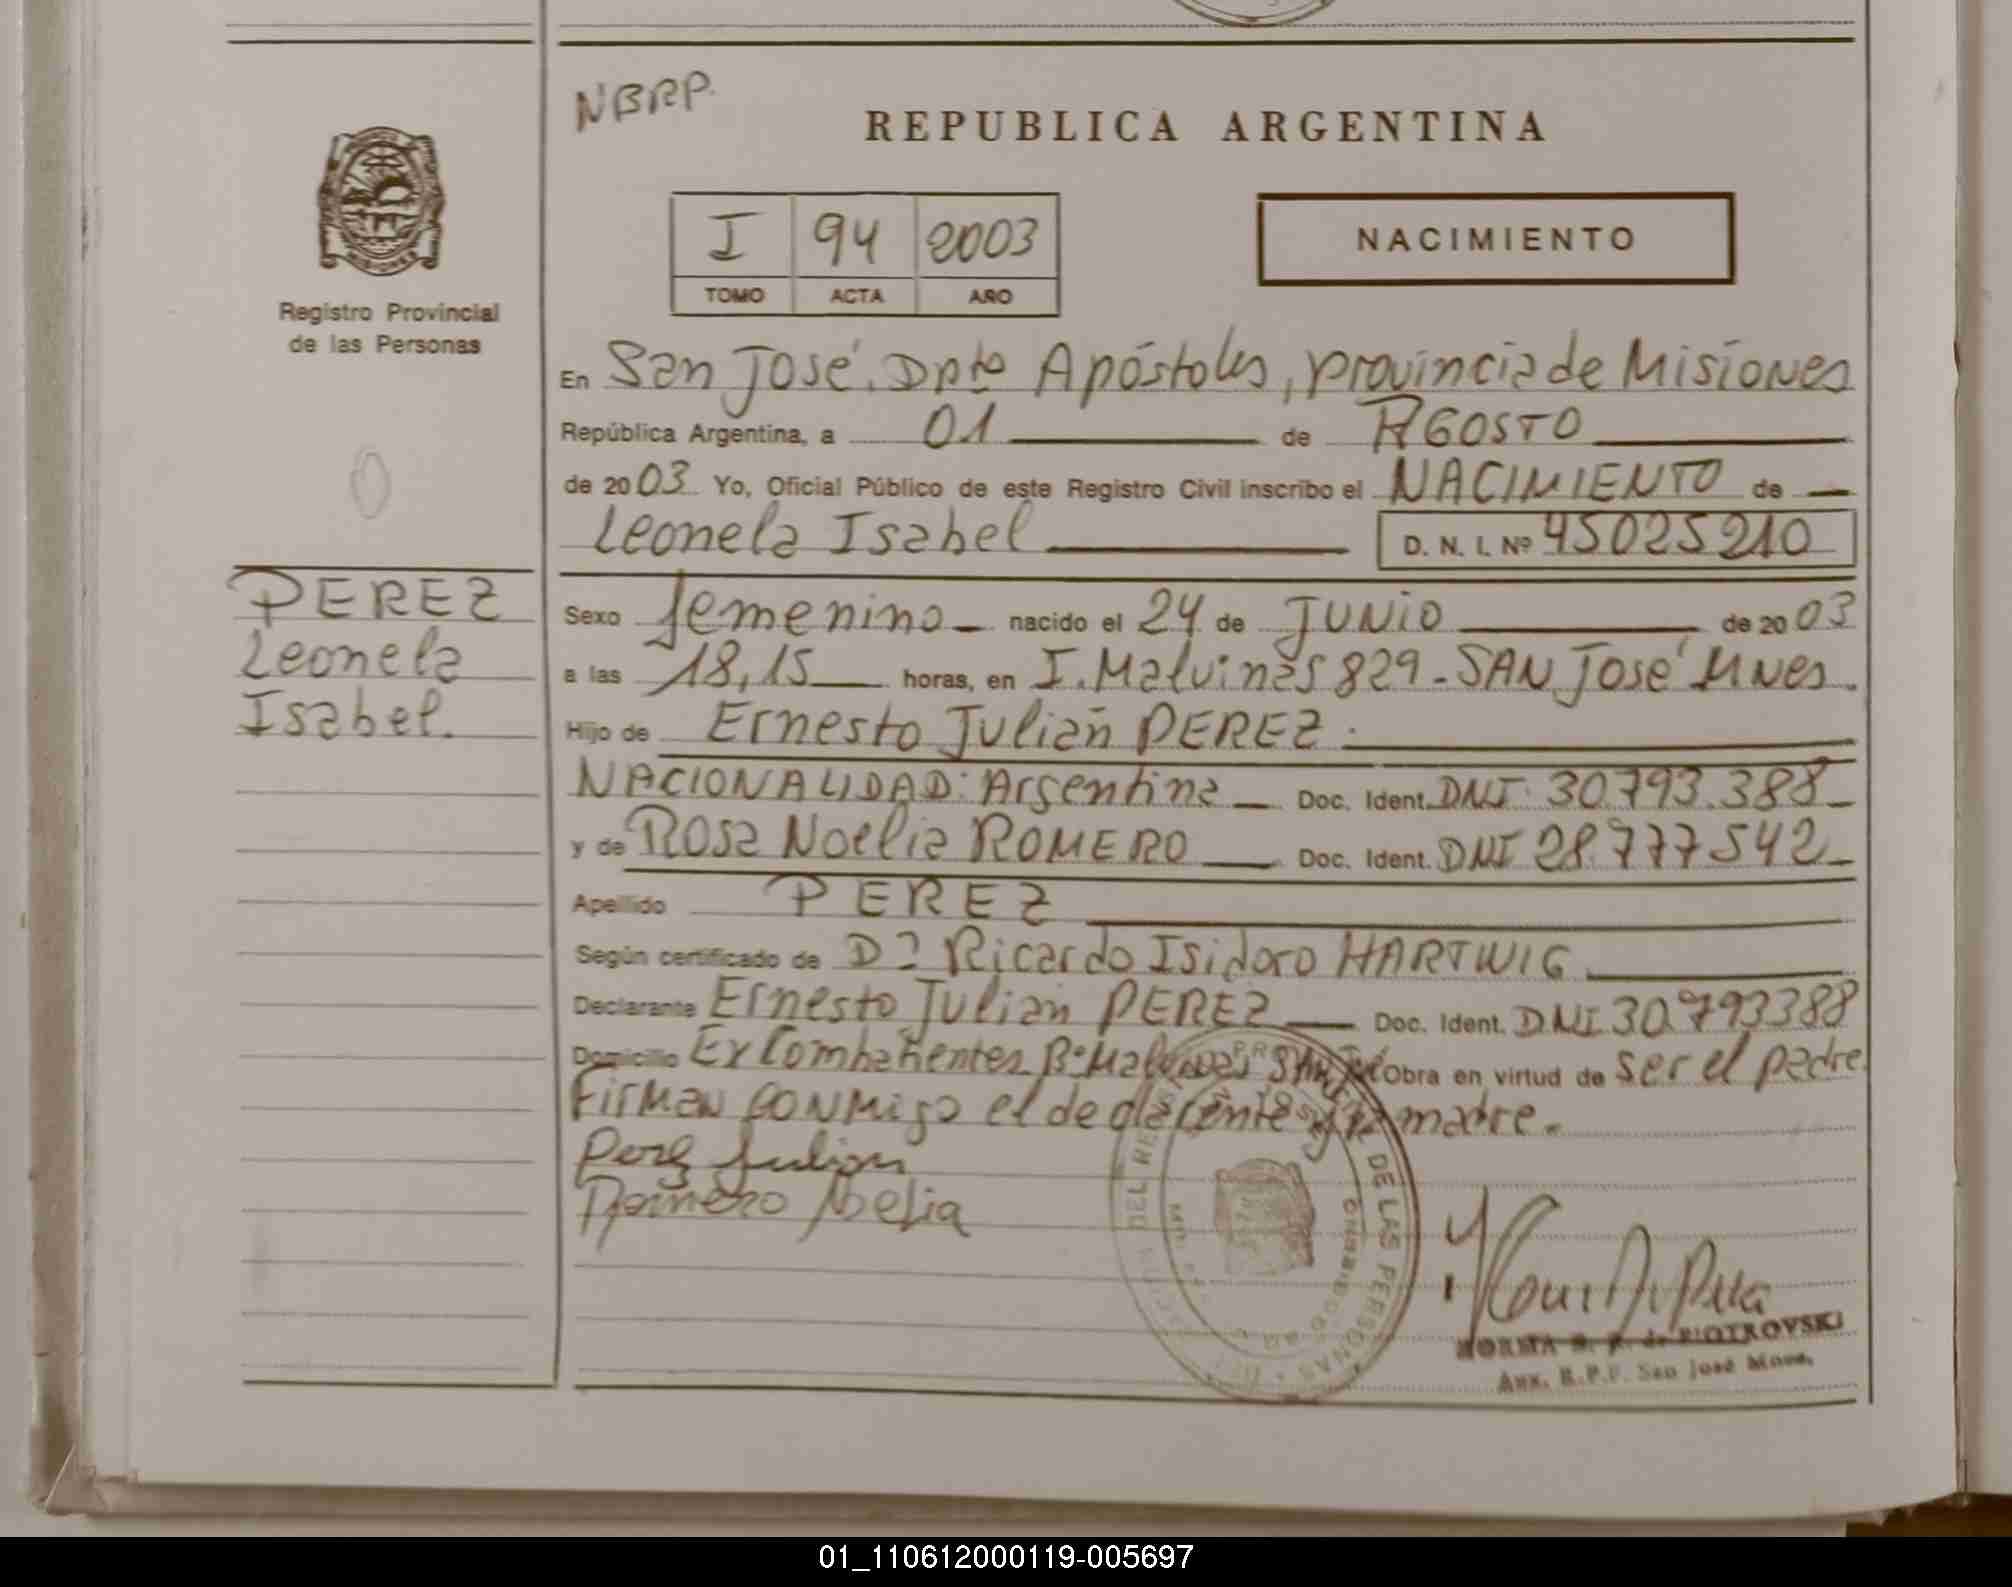 NBRP.
REPUBLICA ARGENTINA
I 94 2003
TOMO ACTA AÑO
NACIMIENTO
MISIONES
Registro Provincial
de las Personas
En San José. Dpto Apóstoles, provincia de Misiones
República Argentina, a 01 de AGOSTO
de 2003 Yo, Oficial Público de este Registro Civil inscribo el NACIMIENTO de
Leonela Isabel D. N. I. Nº 45025210
PEREZ
Leonela
Isabel.
Sexo femenino nacido el 24 de JUNIO de 2003
a las 18,15 horas, en I. Malvinas 829 - SAN José Mnes.
Hijo de Ernesto Julián PEREZ.
NACIONALIDAD: Argentina Doc. Ident. DNI 30.793.388
y de Rosa Noelia ROMERO Doc. Ident. DNI 28.777542
Apellido PEREZ
Según certificado de Dr Ricardo Isidoro HARTWIG
Declarante Ernesto Julian PEREZ Doc. Ident. DNI 30.793388
Domicilio Ex Combatientes Bº Malvinas San José Obra en virtud de ser el padre
Firman conmigo el declarante y la madre.
Perez Julian
Romero Noelia
DEL DE LAS PERSONAS
NORMA de PIOTROVSKI
Aux. R.P.P. San José Mnes.
01_110612000119-005697